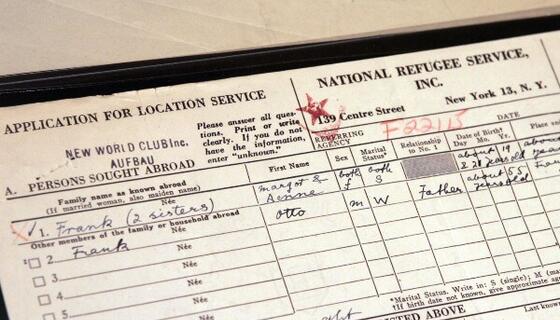 APPLICATION FOR LOCATION SERVICE
NEW WORLD CLUB Inc.
AUFBAU
Please answer all ques-
tions. Print or write
clearly. If you do not
have the information,
enter "unknown."
NATIONAL REFUGEE SERVICE,
INC.
139 Centre Street
New York 13, N. Y.
F22115
REFERRING
AGENCY
DATE
A. PERSONS SOUGHT ABROAD
Family name as known abroad
(If married woman, also maiden name)
First Name
Sex
Marital
Status*
Relationship
to No. 1
Date of Birth†
Da. Mo. Yr.
1. Frank (2 sisters) margot & both both about 19
Née Aenne f S & 20 years old
Other members of the family or household abroad
2. Frank Otto m W Father about 55 years old
Née
3
Née
4
Née
5
Née
*Marital Status. Write in S (single); M (mar
†If birth date not known, give approximate age
LISTED ABOVE
Last known